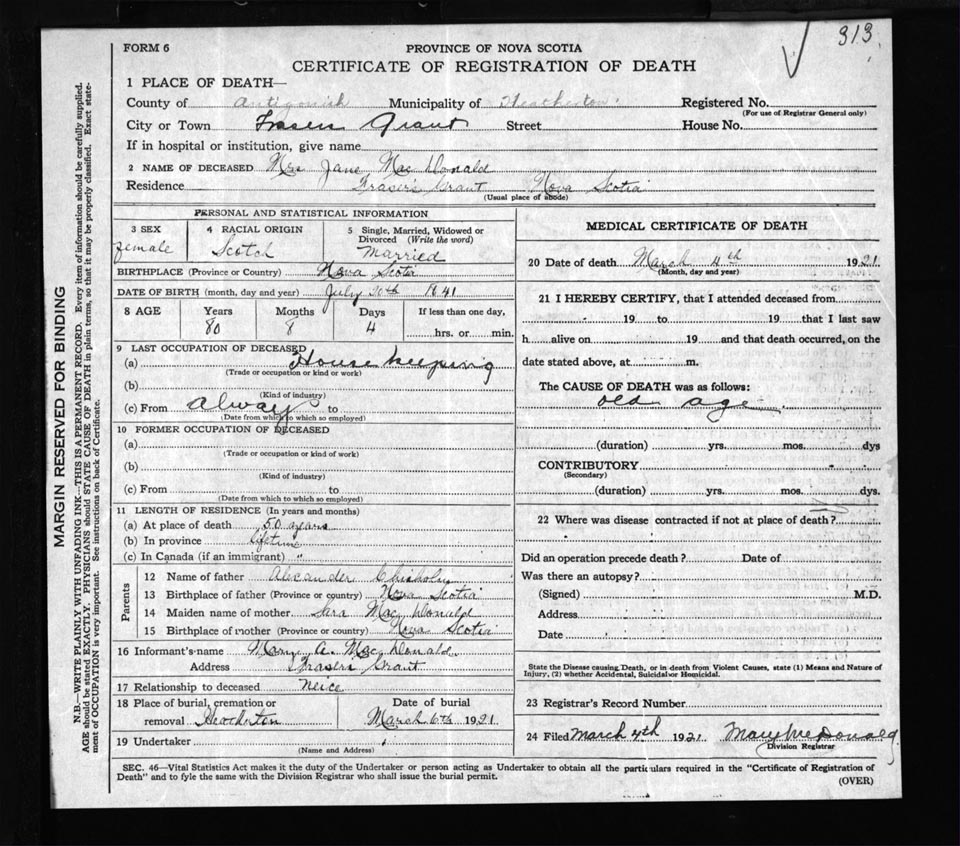 313
FORM 6
PROVINCE OF NOVA SCOTIA
CERTIFICATE OF REGISTRATION OF DEATH
1 PLACE OF DEATH—
County of Antigonish Municipality of Heatherton Registered No.
(For use of Registrar General only)
City or Town Frasers Grant Street House No.
If in hospital or institution, give name
2 NAME OF DECEASED Mrs Jane Mac Donald
Residence Frasers Grant Nova Scotia
(Usual place of abode)
PERSONAL AND STATISTICAL INFORMATION
3 SEX female
4 RACIAL ORIGIN Scotch
5 Single, Married, Widowed or Divorced (Write the word) Married
BIRTHPLACE (Province or Country) Nova Scotia
DATE OF BIRTH (month, day and year) July 20th 1841
8 AGE Years 80 Months 8 Days 4 If less than one day, hrs. or min.
9 LAST OCCUPATION OF DECEASED
(a) House keeping
(Trade or occupation or kind or work)
(b)
(Kind of industry)
(c) From always to
(Date from which to which so employed)
10 FORMER OCCUPATION OF DECEASED
(a)
(Trade or occupation or kind of work)
(b)
(Kind of industry)
(c) From to
(Date from which to which so employed)
11 LENGTH OF RESIDENCE (In years and months)
(a) At place of death 50 years
(b) In province lifetime
(c) In Canada (if an immigrant) "
Parents
12 Name of father Alexander Chisholm
13 Birthplace of father (Province or country) Nova Scotia
14 Maiden name of mother Sara Mac Donald
15 Birthplace of mother (Province or country) Nova Scotia
16 Informant's name Mary A. Mac Donald
Address Frasers Grant
17 Relationship to deceased Neice
18 Place of burial, cremation or removal Heatherton
Date of burial March 6th 1921
19 Undertaker
(Name and Address)
MEDICAL CERTIFICATE OF DEATH
20 Date of death March 4th 1921
(Month, day and year)
21 I HEREBY CERTIFY, that I attended deceased from
19 to 19 that I last saw
h alive on 19 and that death occurred, on the
date stated above, at m.
The CAUSE OF DEATH was as follows:
old age
(duration) yrs. mos. dys
CONTRIBUTORY
(Secondary)
(duration) yrs. mos. dys.
22 Where was disease contracted if not at place of death?
Did an operation precede death? Date of
Was there an autopsy?
(Signed) M.D.
Address
Date
State the Disease causing Death, or in death from Violent Causes, state (1) Means and Nature of
Injury, (2) whether Accidental, Suicidal or Homicidal.
23 Registrar's Record Number
24 Filed March 4th 1921 Mary McDonald
Division Registrar
SEC. 46—Vital Statistics Act makes it the duty of the Undertaker or person acting as Undertaker to obtain all the particulars required in the "Certificate of Registration of
Death" and to fyle the same with the Division Registrar who shall issue the burial permit.
(OVER)
MARGIN RESERVED FOR BINDING
N.B.—WRITE PLAINLY WITH UNFADING INK—THIS IS A PERMANENT RECORD. Every item of information should be carefully supplied.
AGE should be stated EXACTLY. PHYSICIANS should STATE CAUSE OF DEATH in plain terms, so that it may be properly classified. Exact state-
ment of OCCUPATION is very important. See instructions on back of Certificate.